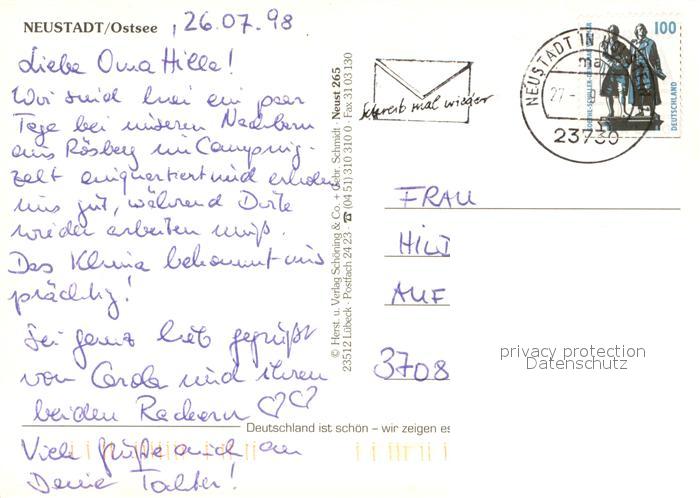 NEUSTADT/Ostsee , 26.07.98
Liebe Oma Hilla!
Wir sind hier ein paar
Tage bei unseren Nachbarn
aus Rösberg im Camping-
zelt einquartiert und erholen
uns gut, während Dorte
wieder arbeiten muß.
Das Klima bekommt uns
prächtig!
Sei ganz lieb gegrüßt
von Carola und ihren
beiden Rackern
Viele Grüße auch an
Deine Tochter!
© Herst. u. Verlag Schöning & Co. + Gebr. Schmidt · Neust 265
23512 Lübeck · Postfach 24 23 · ☎ (04 51) 310 310 0 · Fax 31 03 130
Schreib mal wieder
NEUSTADT IN
ma
27.
23730
100
GOETHE-SCHILLER-DENKMAL
DEUTSCHLAND
FRAU
HILD
AUF
3708
privacy protection
Datenschutz
Deutschland ist schön – wir zeigen es